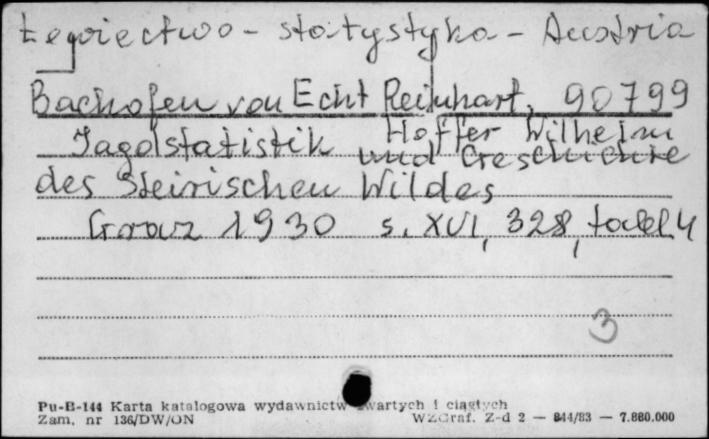 Łowiectwo - statystyka - Austria
Bachofen von Echt Reinhart, 90799
Hoffer Wilhelm
Jagdstatistik und Geschichte
des Steirischen Wildes
Graz 1930 s. XVI, 328, tabl 4
3
Pu-B-144 Karta katalogowa wydawnictw zwartych i ciągłych
Zam. nr 136/DW/ON WZGraf. Z-d 2 — 844/83 — 7.880.000